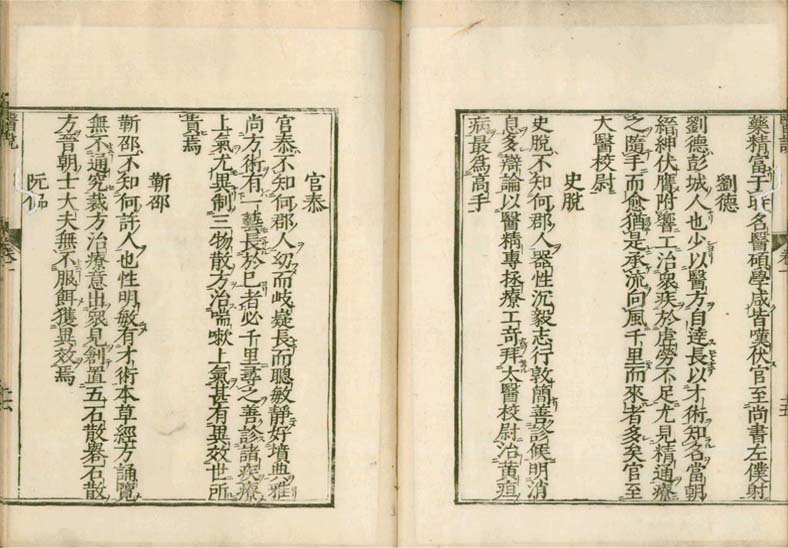 藥精富于時名醫碩學咸皆嘆伏官至尚書左僕射
劉德
劉德彭城人也少以醫方自達長以才術知名當朝
縉紳伏膺附響工治衆疾於虛勞不足尤見精通療
之隨手而愈猶是承流向風千里而來者多矣官至
大醫校尉
史脫
史脫不知何郡人器性沉毅志行敦簡善診候明消
息多辯論以醫精專拯療工奇拜太醫校尉治黃疸
病最爲高手
官泰
官泰不知何郡人幼而歧嶷長而聰敏靜好墳典雅
尚方術有一藝長於已者必千里尋之善診諸疾療
上氣尤異制三物散方治喘嗽上氣甚有異效世所
貴焉
靳邵
靳邵不知何許人也性明敏有才術本草經方誦覽
無不通究裁方治療意出衆見創置五石散礜石散
方晉朝士大夫無不服餌獲異效焉
阮偘